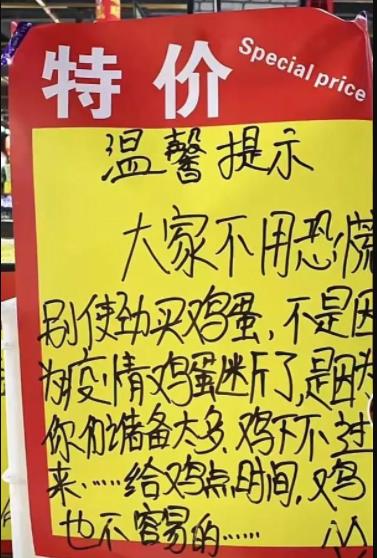 特价 Special price
温馨提示
大家不用恐慌
别使劲买鸡蛋，不是因
为疫情鸡蛋断了，是因为
你们准备太多，鸡下不过
来……给鸡点时间，鸡
也不容易的……